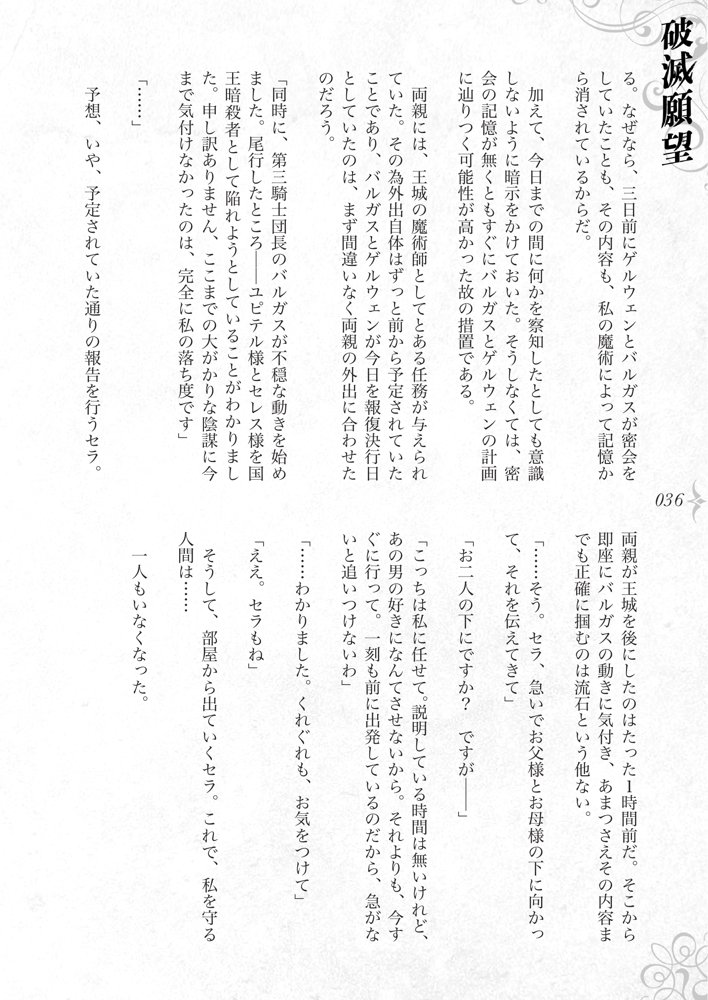 破滅願望
る。なぜなら、三日前にゲルウェンとバルガスが密会を
していたことも、その内容も、私の魔術によって記憶か
ら消されているからだ。
加えて、今日までの間に何かを察知したとしても意識
しないように暗示をかけておいた。そうしなくては、密
会の記憶が無くともすぐにバルガスとゲルウェンの計画
に辿りつく可能性が高かった故の措置である。
両親には、王城の魔術師としてとある任務が与えられ
ていた。その為外出自体はずっと前から予定されていた
ことであり、バルガスとゲルウェンが今日を報復決行日
としていたのは、まず間違いなく両親の外出に合わせた
のだろう。
「同時に、第三騎士団長のバルガスが不穏な動きを始め
ました。尾行したところ――ユピテル様とセレス様を国
王暗殺者として陥れようとしていることがわかりまし
た。申し訳ありません、ここまでの大がかりな陰謀に今
まで気付けなかったのは、完全に私の落ち度です」
「……」
予想、いや、予定されていた通りの報告を行うセラ。
036
両親が王城を後にしたのはたった1時間前だ。そこから
即座にバルガスの動きに気付き、あまつさえその内容ま
でも正確に掴むのは流石という他ない。
「……そう。セラ、急いでお父様とお母様の下に向かっ
て、それを伝えてきて」
「お二人の下にですか？　ですが――」
「こっちは私に任せて。説明している時間は無いけれど、
あの男の好きになんてさせないから。それよりも、今す
ぐに行って。一刻も前に出発しているのだから、急がな
いと追いつけないわ」
「……わかりました。くれぐれも、お気をつけて」
「ええ。セラもね」
そうして、部屋から出ていくセラ。これで、私を守る
人間は……
一人もいなくなった。